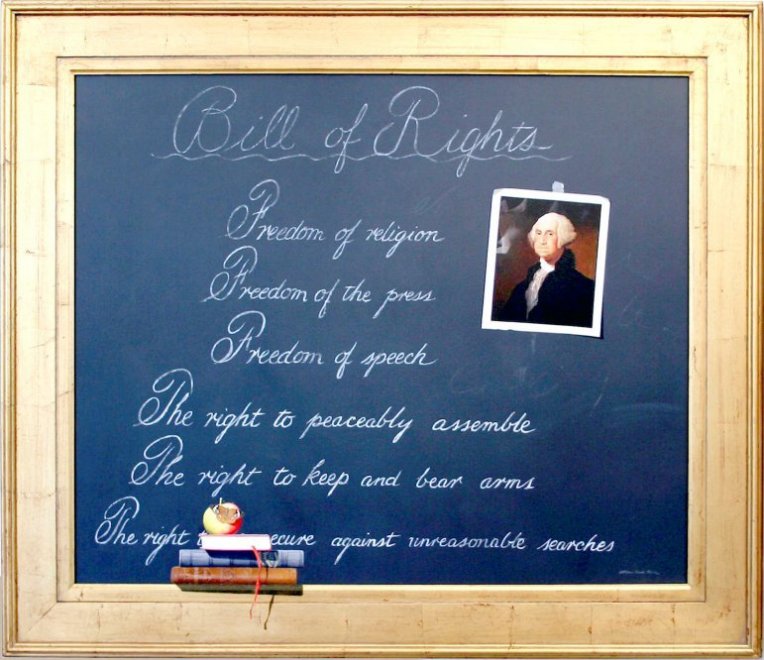 Bill of Rights
Freedom of religion
Freedom of the press
Freedom of speech
The right to peaceably assemble
The right to keep and bear arms
The right ecure against unreasonable searches